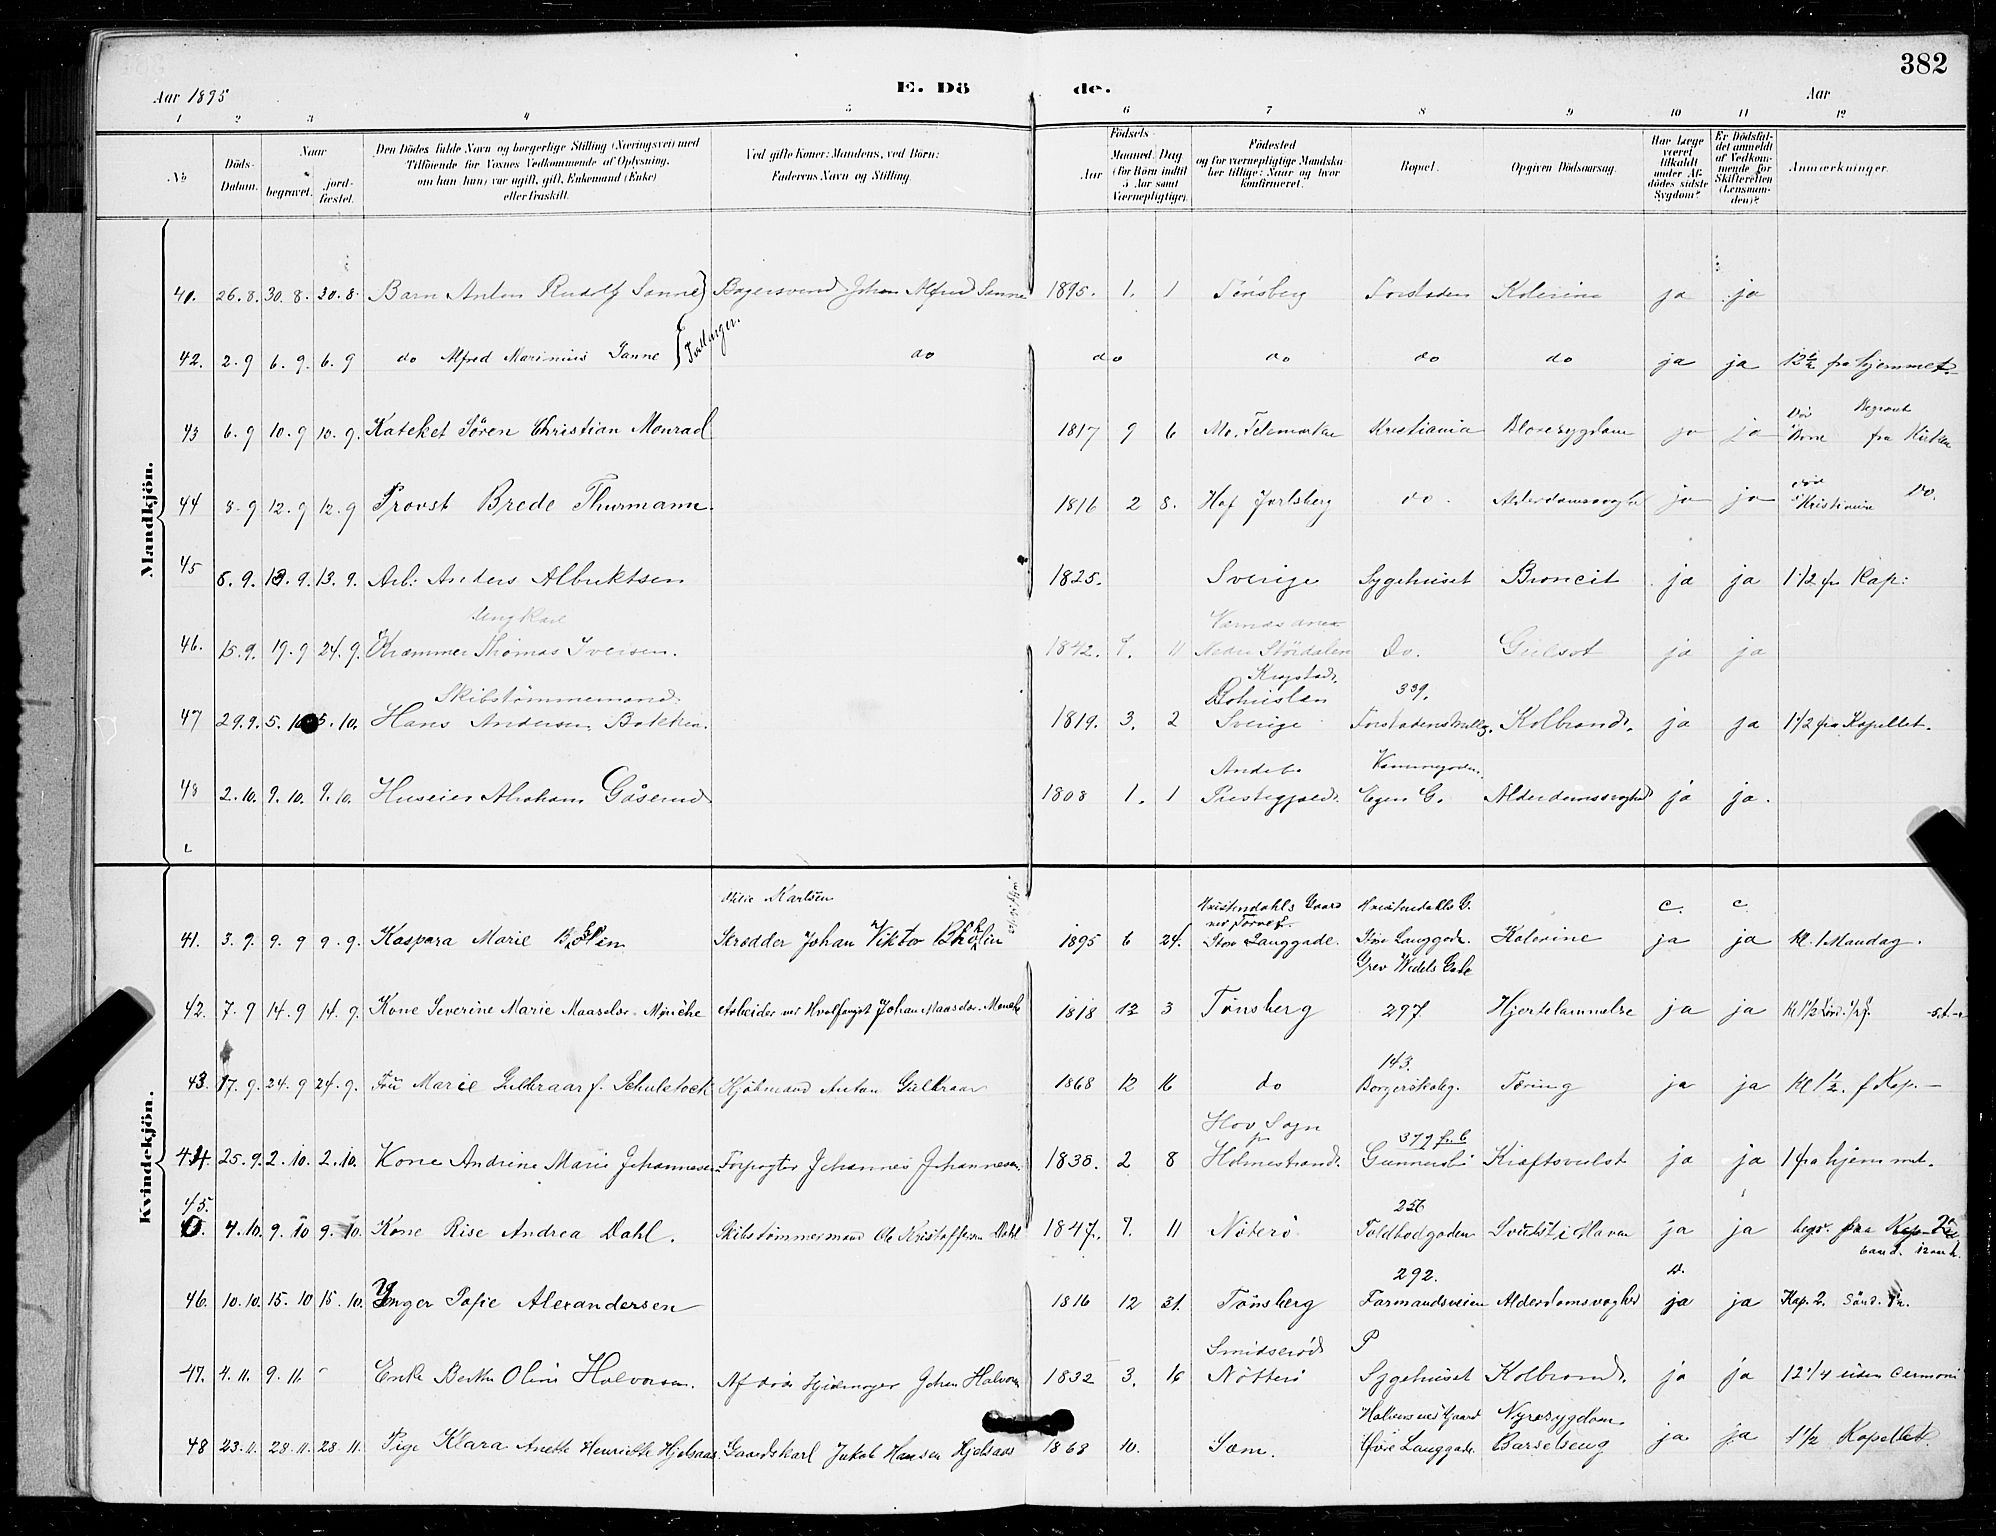 382
Aar 1895 E. Dö de. Aar
1 2 3 4 5 6 7 8 9 10 11 12
No
Döds-Datum.
Naar
begravet. jord-fæstet.
Den Dödes fulde Navn og borgerlige Stilling (Næringsvei) med
Tilföiende for Voxnes Vedkommende af Oplysning,
om han (hun) var ugift, gift, Enkemand (Enke)
eller fraskilt.
Ved gifte Koner: Mandens, ved Börn:
Faderens Navn og Stilling.
Födsels-
Aar Maaned Dag
(for Börn indtil
5 Aar samt
Værnepligtige).
Födested
og for værnepligtige Mandska-
ber tillige: Naar og hvor
konfirmeret.
Bopæl.
Opgiven Dödsaarsag.
Har Læge
været
tilkaldt
under Af-
dödes sidste
Sygdom?
Er Dödsfal-
det anmeldt
af Vedkom-
mende for
Skifteretten
(Lensman-
den)?
Anmærkninger.
Mandkjön.
41. 26.8. 30.8. 30.8. Barn Anton Rudolf Sanne Bagersvend Johan Alfred Sanne 1895. 1. 1 Tönsberg Forstaden Kolerine ja ja
Tvillinger.
42. 2.9 6.9. 6.9 do Alfred Marinius Sanne do do do do do ja ja 12½ fra hjemmet.
43 6.9 10.9 10.9. Kateket Sören Christian Monrad 1817 9 6 Mo. Telemarken Kristiania Blæresygdom ja ja Död Begravet fra Kirken
44 8.9 12.9 12.9 Provst Brede Thurmann. 1816 2 8. Hof Jarlsberg do. Alderdomssvaghed ja ja död i Kristiania Do.
45 6.9. 13.9. 13.9. Arb: Anders Albrektsen 1825. Sverige Sygehuset Broncit ja ja 1 1/2 fra Kap:
Ungkarl
46. 15.9. 19.9 24.9. Kræmmer Thomas Iversen. 1842. 11 Nedre Stördalen Do. Gulsot ja ja
Skibstömmermand. Bohuslen 339.
47 29.9. 5.10 5.10. Hans Andersen Bakken. 1819. 3. 2 Sverige Kolbrand. ja ja 1 1/2 fra Kapellet.
Andebo
48 2.10. 9.10. 9.10. Huseier Abraham Gåserud 1808 1. 1 Prestegjæld. Egen G. Alderdomssvaghed ja ja.
Kvindekjön.
Karlsen Kristendahls Gaard Kristendahls G. c. c
ved Torvet
41. 3.9. 9.9 9.9. Kaspara Marie Skrædder Johan Viktor 1895 6 24. Store Langgade. Store Langgade. Kolerine ja ja kl. 1 Mandag.
Grev Wedels Gade
42. 7.9 14.9 14.9. Kone Severine Marie Maaselsr. Münche Arbeider ved Hvalfangst Johan Münche 1818 12 3 Tønsberg 297 Hjertelammelse ja ja
143.
43. 17.9. 24.9 24.9. Fru Marie Gulkraar f. Schulstock Kjöbmand Anton Gulkraar 1868 12 16 do Borgerskoleg. Tæring ja ja kl 1½. f Kap. –
Hov Sogn 379 fr. b
44. 25.9. 2.10. 2.10. Kone Andrine Marie Johannesen Forpagter Johannes Johannesen. 1838. 2 8 Holmestrand. Gunnersbö Kræftsvulst ja ja 1 fra hjemmet.
256
45. 4.10. 9.10 9.10. Kone Rise Andrea Dahl. Skibstömmermand Ole Kristoffersen Dahl 1847. 7. 11 Nöterö Toldbodgaden Svulst i Maven ja ja begr. fra Kap
292.
46. 10.10. 15.10 15.10. Inger Sofie Alexandersen 1816 12 31. Tønsberg Farmandsveien Alderdomssvaghed ja ja Kap. 2.
Smidseröd P
47. 4.11. 9.11. Enke Berthe Oline Halvorsen. Afdöd Johan Halvorsen 1832 3. 16 Nötterö Sygehuset Kolbrand. ja ja 12 1/4 uden Cermoni
Nyresygdom
48 23.11. 28.11. 28.11. Pige Klara Anette Henriette Hjelsaas. Gaardskarl Jakob Hansen Hjelsaas 1868 10. Sæm. Övre Langgade. Barselseng ja. ja 1 1/2 Kapellet.